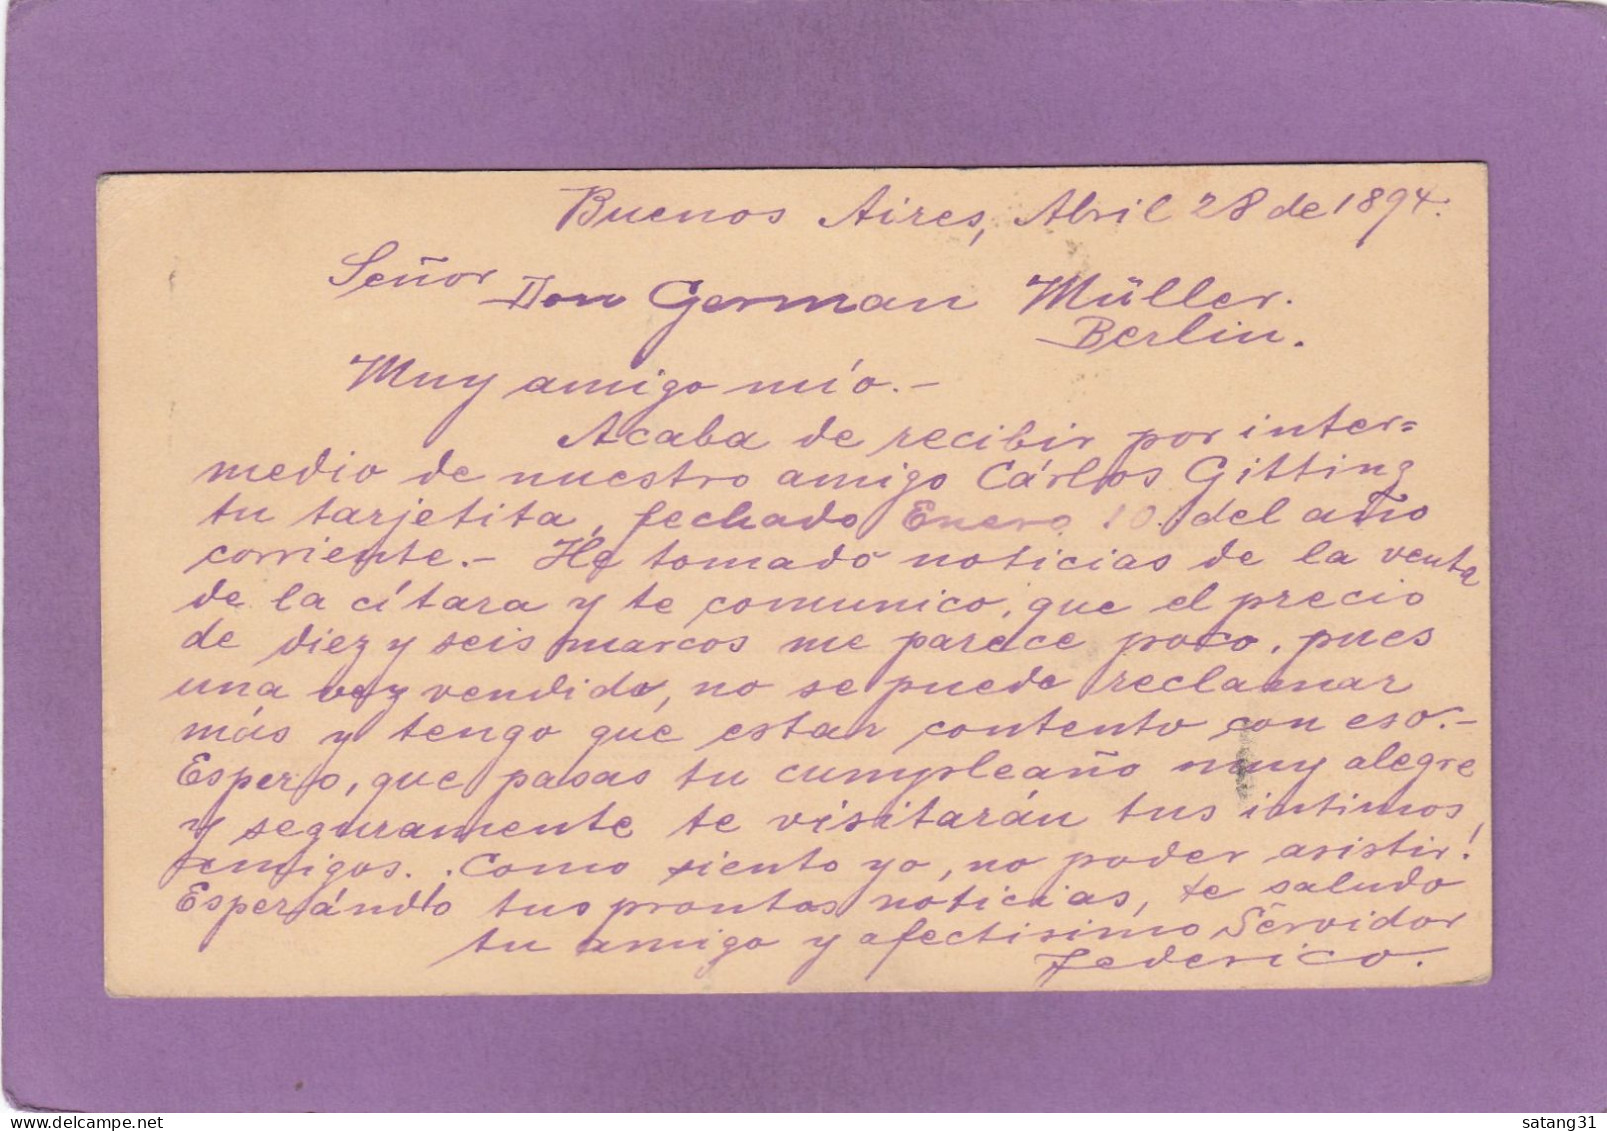 Buenos Aires, Abril 28 de 1894.
Señor
Don German Müller.
Berlin.
Muy amigo mío.-
Acaba de recibir por inter=
medio de nuestro amigo Cárlos Gitting
tu tarjetita, fechado Enero 10. del año
corriente.- He tomado noticias de la venta
de la cítara y te comunico, que el precio
de diez y seis marcos me parece poco, pues
una vez vendido, no se puede reclamar
más y tengo que estar contento con eso.-
Espero, que pasas tu cumpleaño muy alegre
y seguramente te visitarán tus intimos
amigos. Como siento yo, no poder asistir!
Esperándo tus prontas noticias, te saludo
tu amigo y afectisimo Servidor
Federico.
satang31
www.delcampe.net